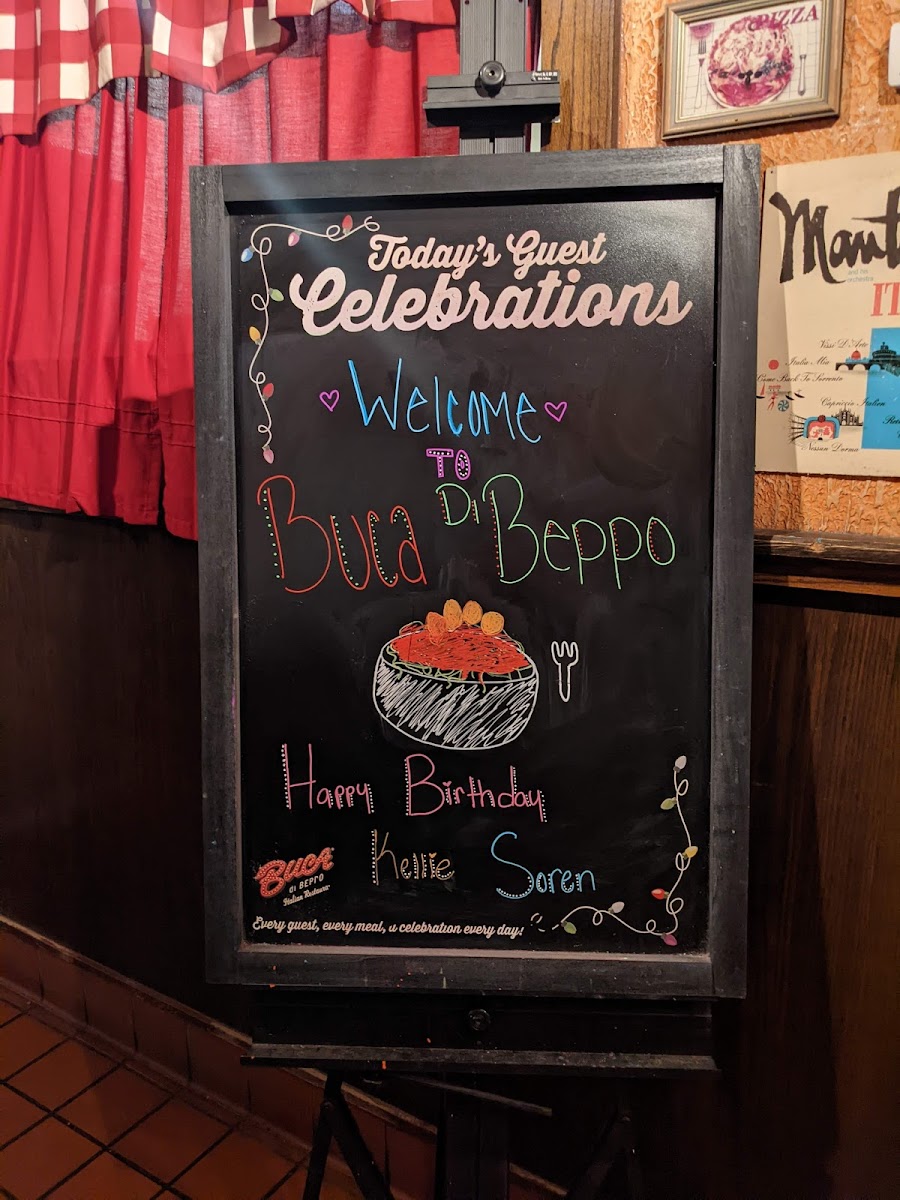 PIZZA
Mant
and his
orchestra
IT
Vissi D'Arte
Italia Mia
Come Back To Sorrento
Capriccio Italien
Nessun Dorma
Today's Guest
Celebrations
Welcome
TO
Buca Di Beppo
Happy Birthday
Kellie Soren
BUCA
di BEPPO
Italian Restaurant
Every guest, every meal, a celebration every day!